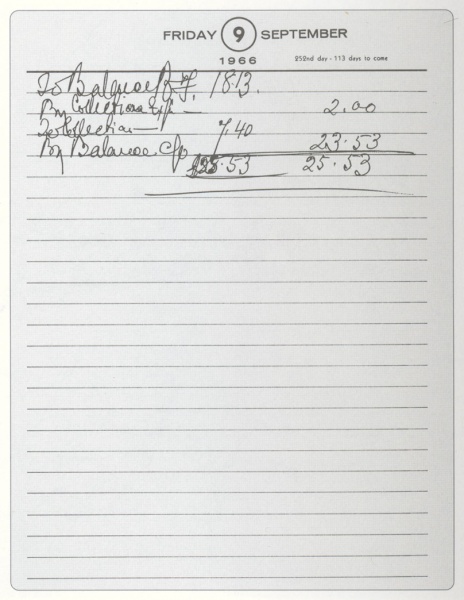 FRIDAY 9 SEPTEMBER
1966 252nd day - 113 days to come
To Balance B/F. 18.13.
By Collections — 2.00
To Collection — 7.40
By Balance C/o 23.53
25.53 25.53